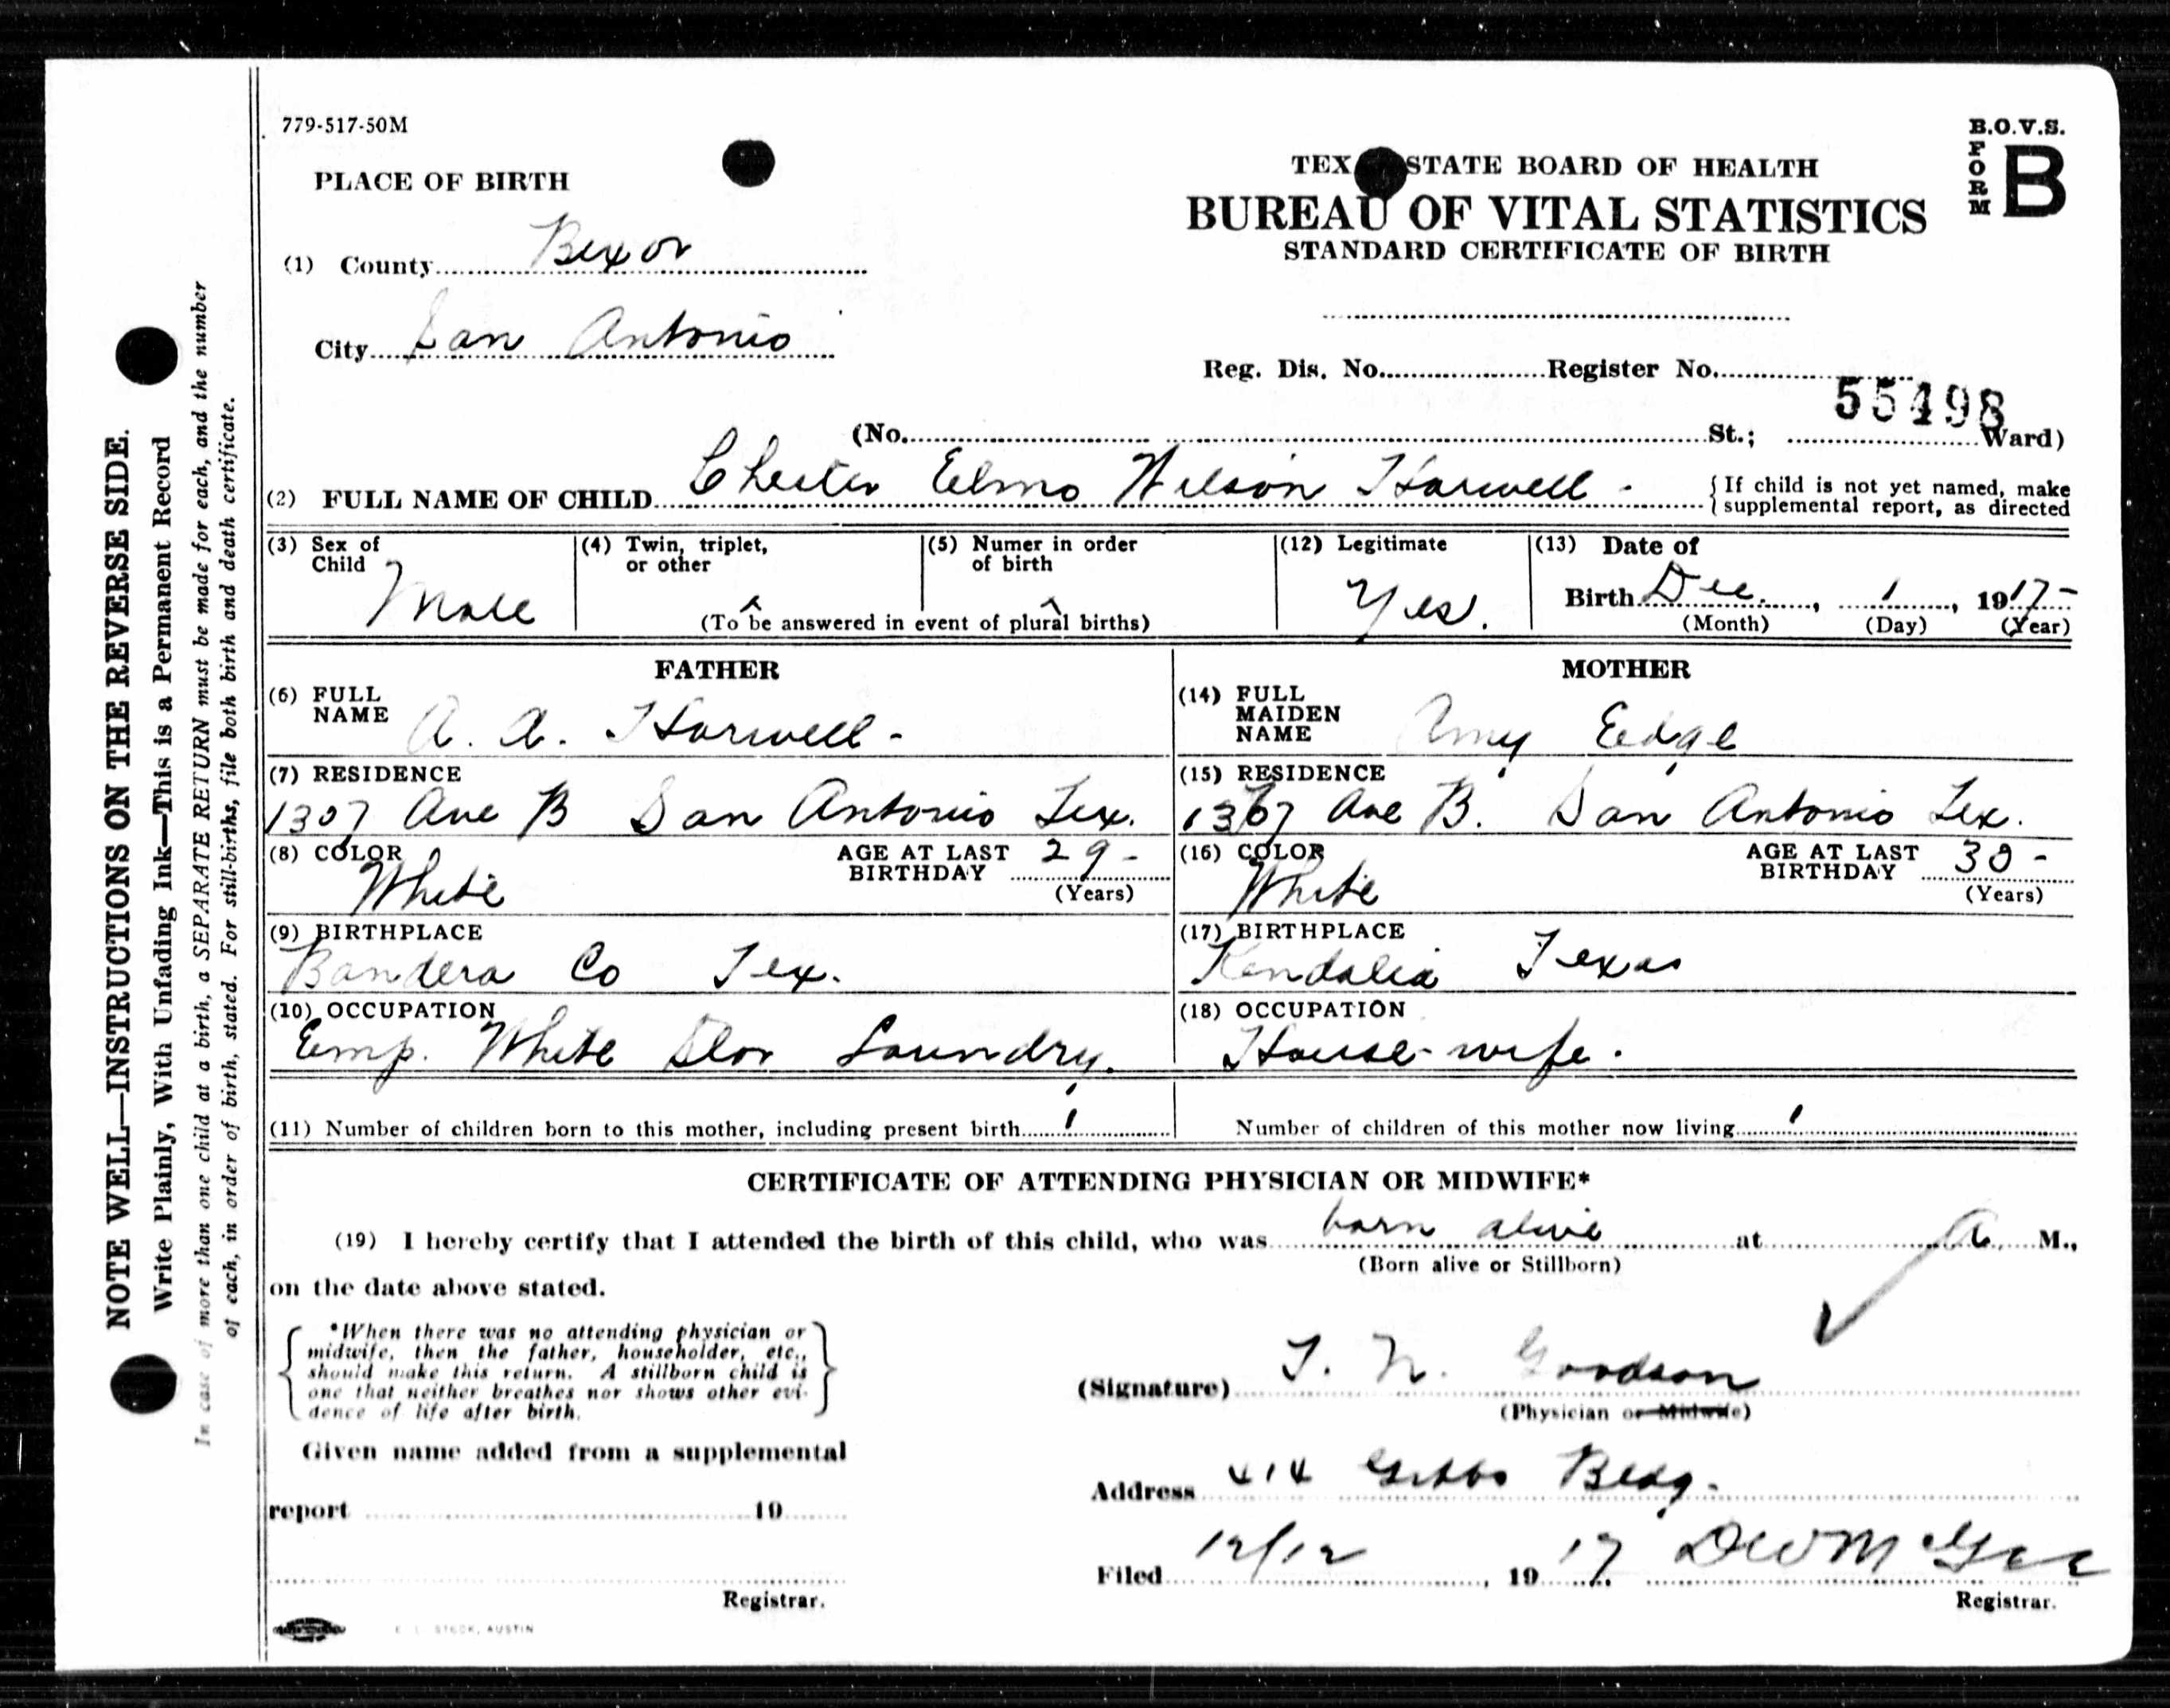 779-517-50M
B.O.V.S.
FORM B
PLACE OF BIRTH
TEX STATE BOARD OF HEALTH
BUREAU OF VITAL STATISTICS
STANDARD CERTIFICATE OF BIRTH
(1) County Bexar
City San Antonio
Reg. Dis. No. Register No.
55498
(No. St.; Ward)
(2) FULL NAME OF CHILD Chester Elmo Wilson Harwell -
{ If child is not yet named, make
{ supplemental report, as directed
(3) Sex of Child Male
(4) Twin, triplet, or other
(5) Numer in order of birth
(To be answered in event of plural births)
(12) Legitimate Yes.
(13) Date of
Birth Dec. , 1 , 1917-
(Month) (Day) (Year)
FATHER
(6) FULL NAME A. A. Harwell -
(7) RESIDENCE
1307 Ave B San Antonio Tex.
(8) COLOR White
AGE AT LAST BIRTHDAY 29 - (Years)
(9) BIRTHPLACE
Bandera Co Tex.
(10) OCCUPATION
Emp. White Star Laundry.
MOTHER
(14) FULL MAIDEN NAME Amy Edge
(15) RESIDENCE
1307 Ave B. San Antonio Tex.
(16) COLOR White
AGE AT LAST BIRTHDAY 30 - (Years)
(17) BIRTHPLACE
Kendalia Texas
(18) OCCUPATION
House-wife.
(11) Number of children born to this mother, including present birth 1
Number of children of this mother now living 1
CERTIFICATE OF ATTENDING PHYSICIAN OR MIDWIFE*
(19) I hereby certify that I attended the birth of this child, who was born alive at A. M.,
(Born alive or Stillborn)
on the date above stated.
*When there was no attending physician or
midwife, then the father, householder, etc.,
should make this return. A stillborn child is
one that neither breathes nor shows other evi-
dence of life after birth.
(Signature) T. N. Goodson
(Physician or Midwife)
Given name added from a supplemental
report 19
Registrar.
Address 414 Gibbs Bldg.
Filed 12/12, 19 17 DWMcGee
Registrar.
STECK, AUSTIN
NOTE WELL—INSTRUCTIONS ON THE REVERSE SIDE.
Write Plainly, With Unfading Ink—This is a Permanent Record
In case of more than one child at a birth, a SEPARATE RETURN must be made for each, and the number
of each, in order of birth, stated. For still-births, file both birth and death certificate.